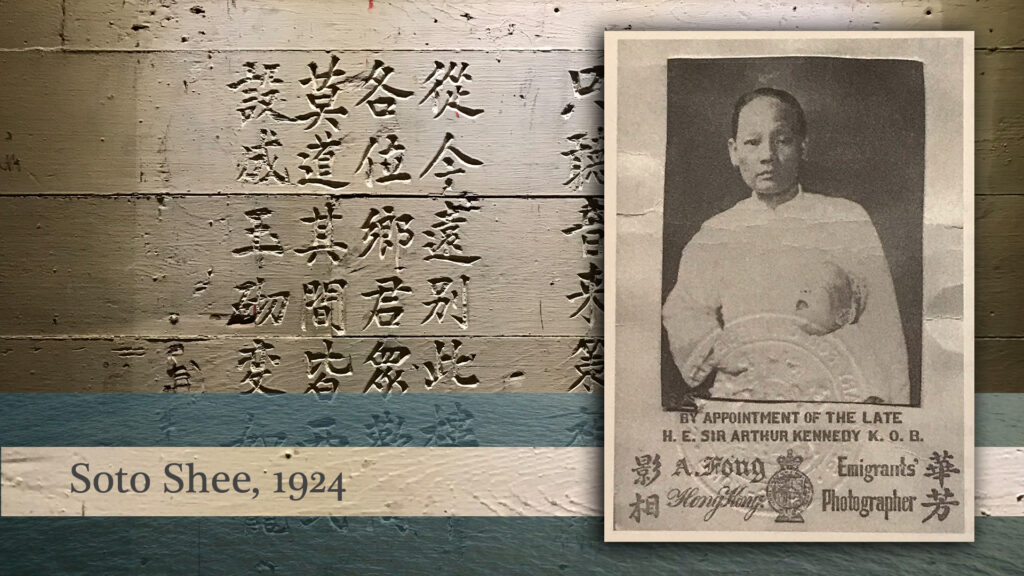 從今遠別此
各位鄉君眾
莫道其間皆
設成玉砌變
Soto Shee, 1924
BY APPOINTMENT OF THE LATE
H. E. SIR ARTHUR KENNEDY K. O. B.
影相
A. Fong
Hong Kong.
Emigrants'
Photographer
華芳